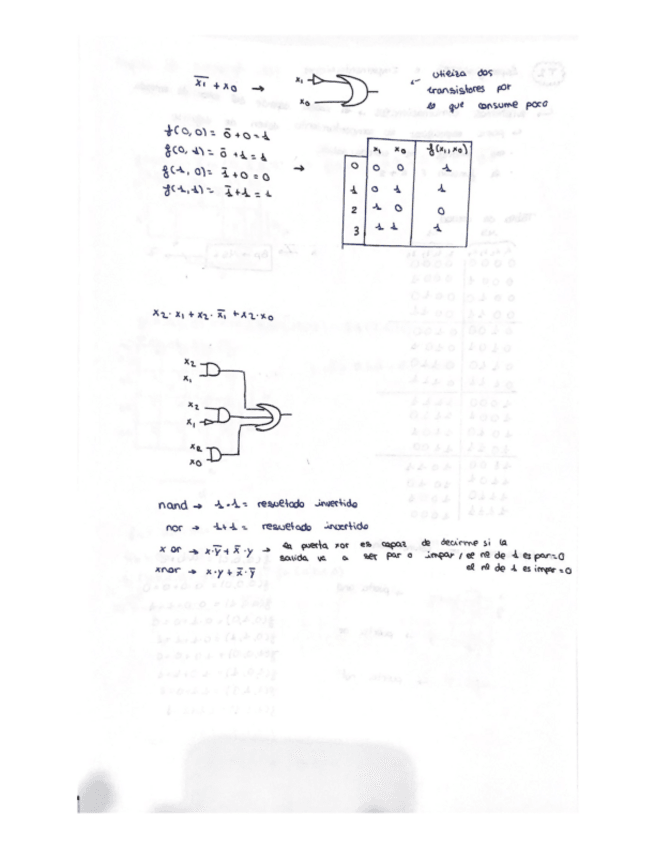 x̅₁ + x₀ →
x₁
x₀
utiliza dos
transistores por
lo que consume poco
f(0,0) = 0̅+0=1
f(0,1) = 0̅+1=1
f(1,0) = 1̅+0=0
f(1,1) = 1̅+1=1
→
x₁ x₀ f(x₁,x₀)
0 0 0 1
1 0 1 1
2 1 0 0
3 1 1 1
x₂·x₁+x₂·x̅₁+x₂·x₀
x₂
x₁
x₂
x₁
x₂
x₀
nand → 1·1= resueltado invertido
nor → 1+1= resueltado invertido
x or → x·y̅+x̅·y → la puerta xor es capaz de decirme si la
salida va a ser par o impar, el nº de 1 es par=0
xnor → x·y+x̅·y̅
el nº de 1 es impar=0